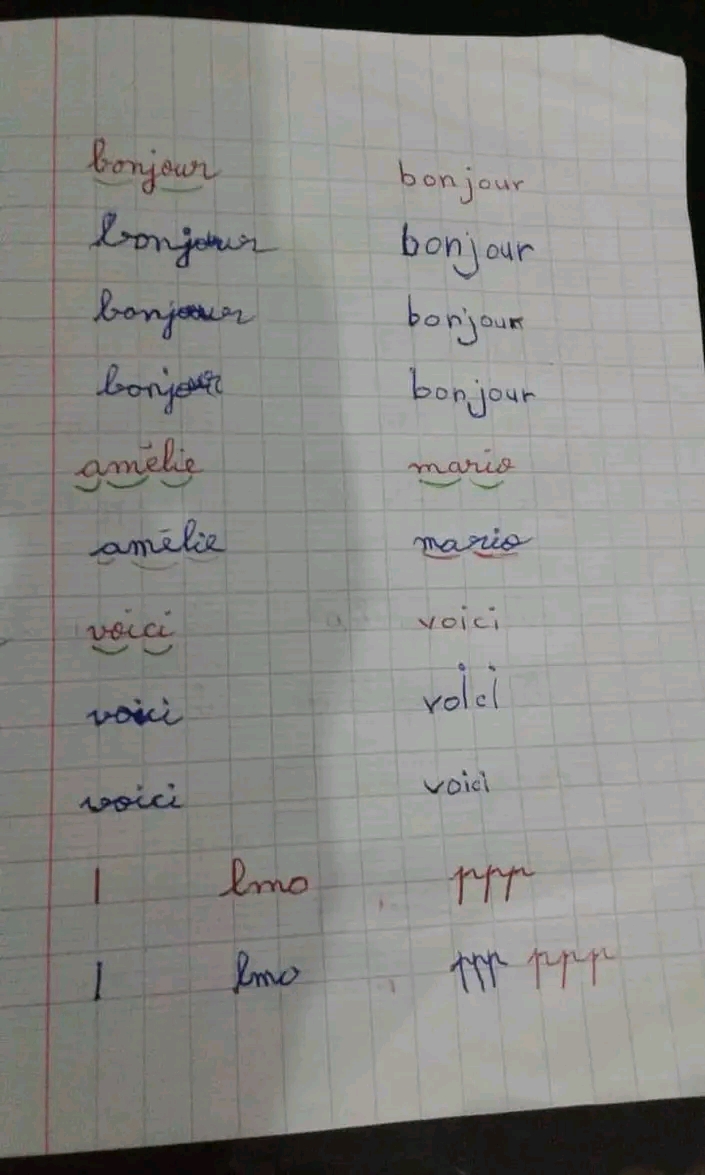 bonjour bonjour
bonjour bonjour
bonjour bonjour
bonjour bonjour
amélie mario
amélie mario
voici voici
voici voici
voici voici
l lmo ppp
l lmo ppp ppp